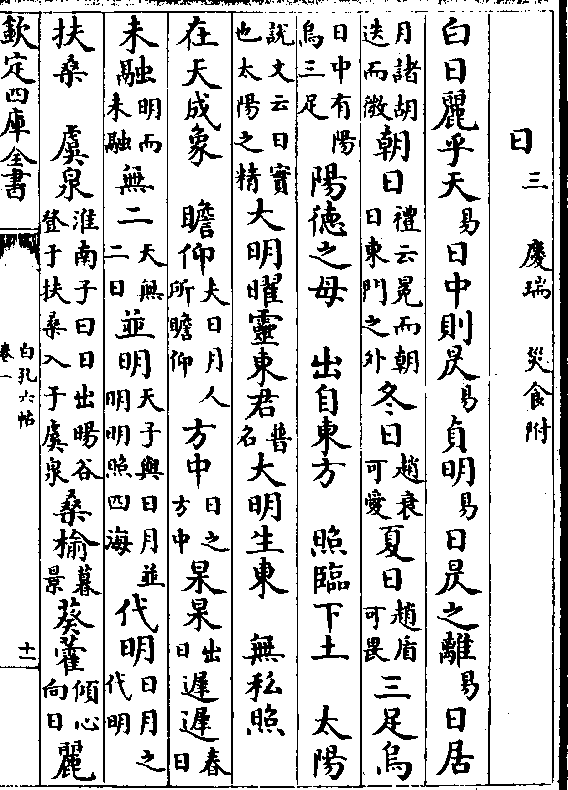 日三 慶瑞 災食附
白日麗乎天易日中則昃易貞明易日昃之離易日居
月諸胡迭而微朝日禮云冕而朝日東門之外冬日趙衰可愛夏日趙盾可畏三足烏
日中有陽烏三足陽德之母 出自東方 照臨下土 太陽
說文云日實也太陽之精大明曜靈東君名大明生東 無私照
在天成象 瞻仰夫日月人所瞻仰方中日之方中杲杲出日遲遲春日
未融明而未融無二天無二日並明天子與日月並明明照四海代明日月之代明
扶桑 虞泉淮南子曰日出暘谷登于扶桑入于虞泉桑榆暮景葵藿傾心向日麗
欽定四庫全書
白孔六帖
卷一
十一